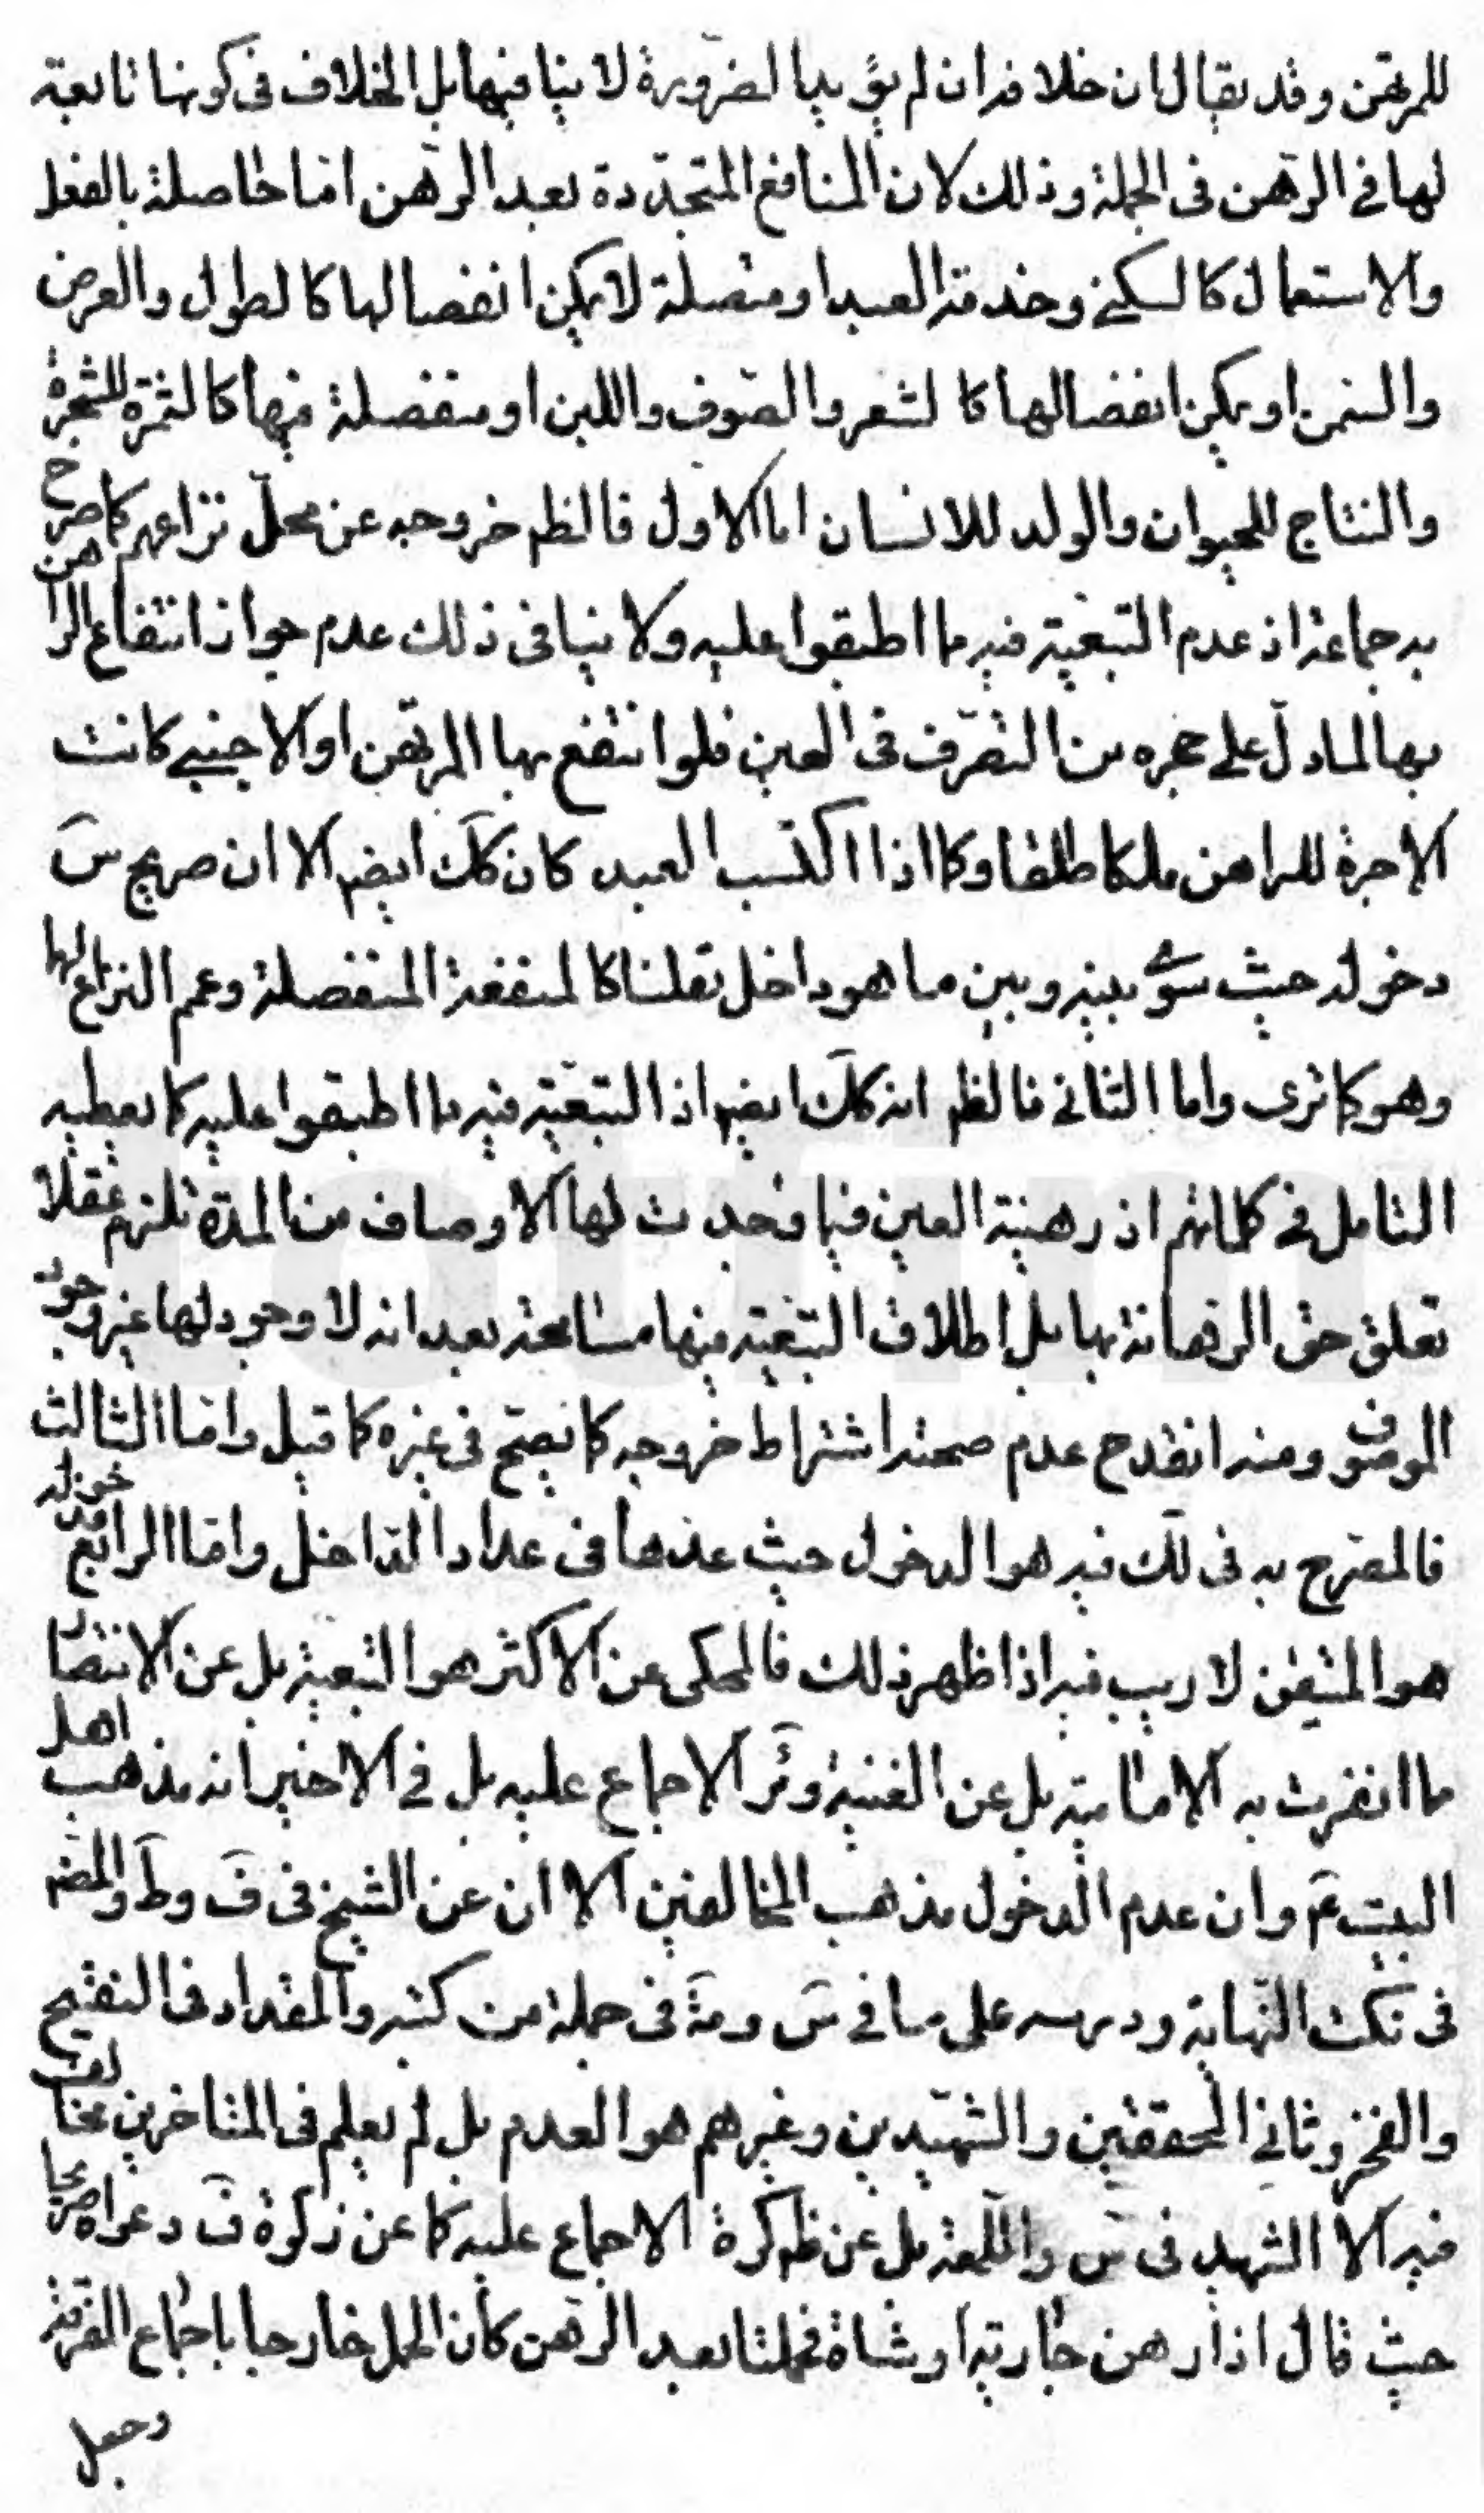 للمرتهن وقد يقال ان خلافه ان لم يؤيد بالضرورة لا ينافيها بل الخلاف فى كونها تابعة
لها فى الرهن فى الجملة وذلك لان المنافع المتجددة بعد الرهن اما حاصلة بالفعل
والاستعمال كالسكنى وخدمة العبد او متصلة لا يمكن انفصالها كالطول والعرض
والسمن او يمكن انفصالها كالشعر والصوف واللبن او منفصلة منها كالثمرة للشجرة
والنتاج للحيوان والولد للانسان اما الاول فالظم خروجه عن محل نزاعهم كما صرح
به جماعة اذ عدم التبعية فيه مما اطبقوا عليه ولا ينافى ذلك عدم جواز انتفاع الراهن
بها لما دل على حجره من التصرف فى العين فلو انتفع بها المرتهن او الاجنبى كانت
الاجرة للراهن ملكا طلقا وكا اذا اكتسب العبد كان كك ايضم الا ان صريح س
دخوله حيث سوى بينه وبين ما هو داخل نقلنا كالمنفعة المنفصلة وعم النزاع لها
وهو كما ترى واما الثانى فالظم انه كك ايضم اذ التبعية فيه مما اطبقوا عليه كما يعطيه
التامل فى كلماتهم اذ رهنية العين فيما تحدث لها الاوصاف من المدة تلزم عقلا
تعلق حق الرهانة بها بل اطلاق التبعية فيها مسامحة بعد انه لا وجود لها غير وجود
الموصوف ومنه انقدح عدم صحة اشتراط خروجه كما يصح فى غيره كما قيل واما الثالث
فالمصرح به فى لك فيه هو الدخول حيث عدها فى عداد الداخل واما الرابع خوله
هو المتيقن لا ريب فيه اذا ظهر ذلك فالمحكى عن الاكثر هو التبعية بل عن الانتصار
مما انفرت به الامامية بل عن الغنية وئر الاجماع عليه بل فى الاخير انه مذهب اهل
البيت ع وان عدم الدخول مذهب المخالفين الا ان عن الشيخ فى ف وط والمصم
فى نكت النهاية ودرسه على ما فى س ومة فى جملة من كتبه والمقداد فى التنقيح
والفخر وثانى المحققين والشهيدين وغيرهم هو العدم بل لم يعلم فى المتاخرين مخالف
فيه الا الشهيد فى س واللمعة بل عن ظم كرة الاجماع عليه كما عن زكوة ف دعواه صريحا
حيث قال اذا رهن جارية او شاة فحملتا بعد الرهن كان الحمل خارجا باجماع الفرقة
وجعل